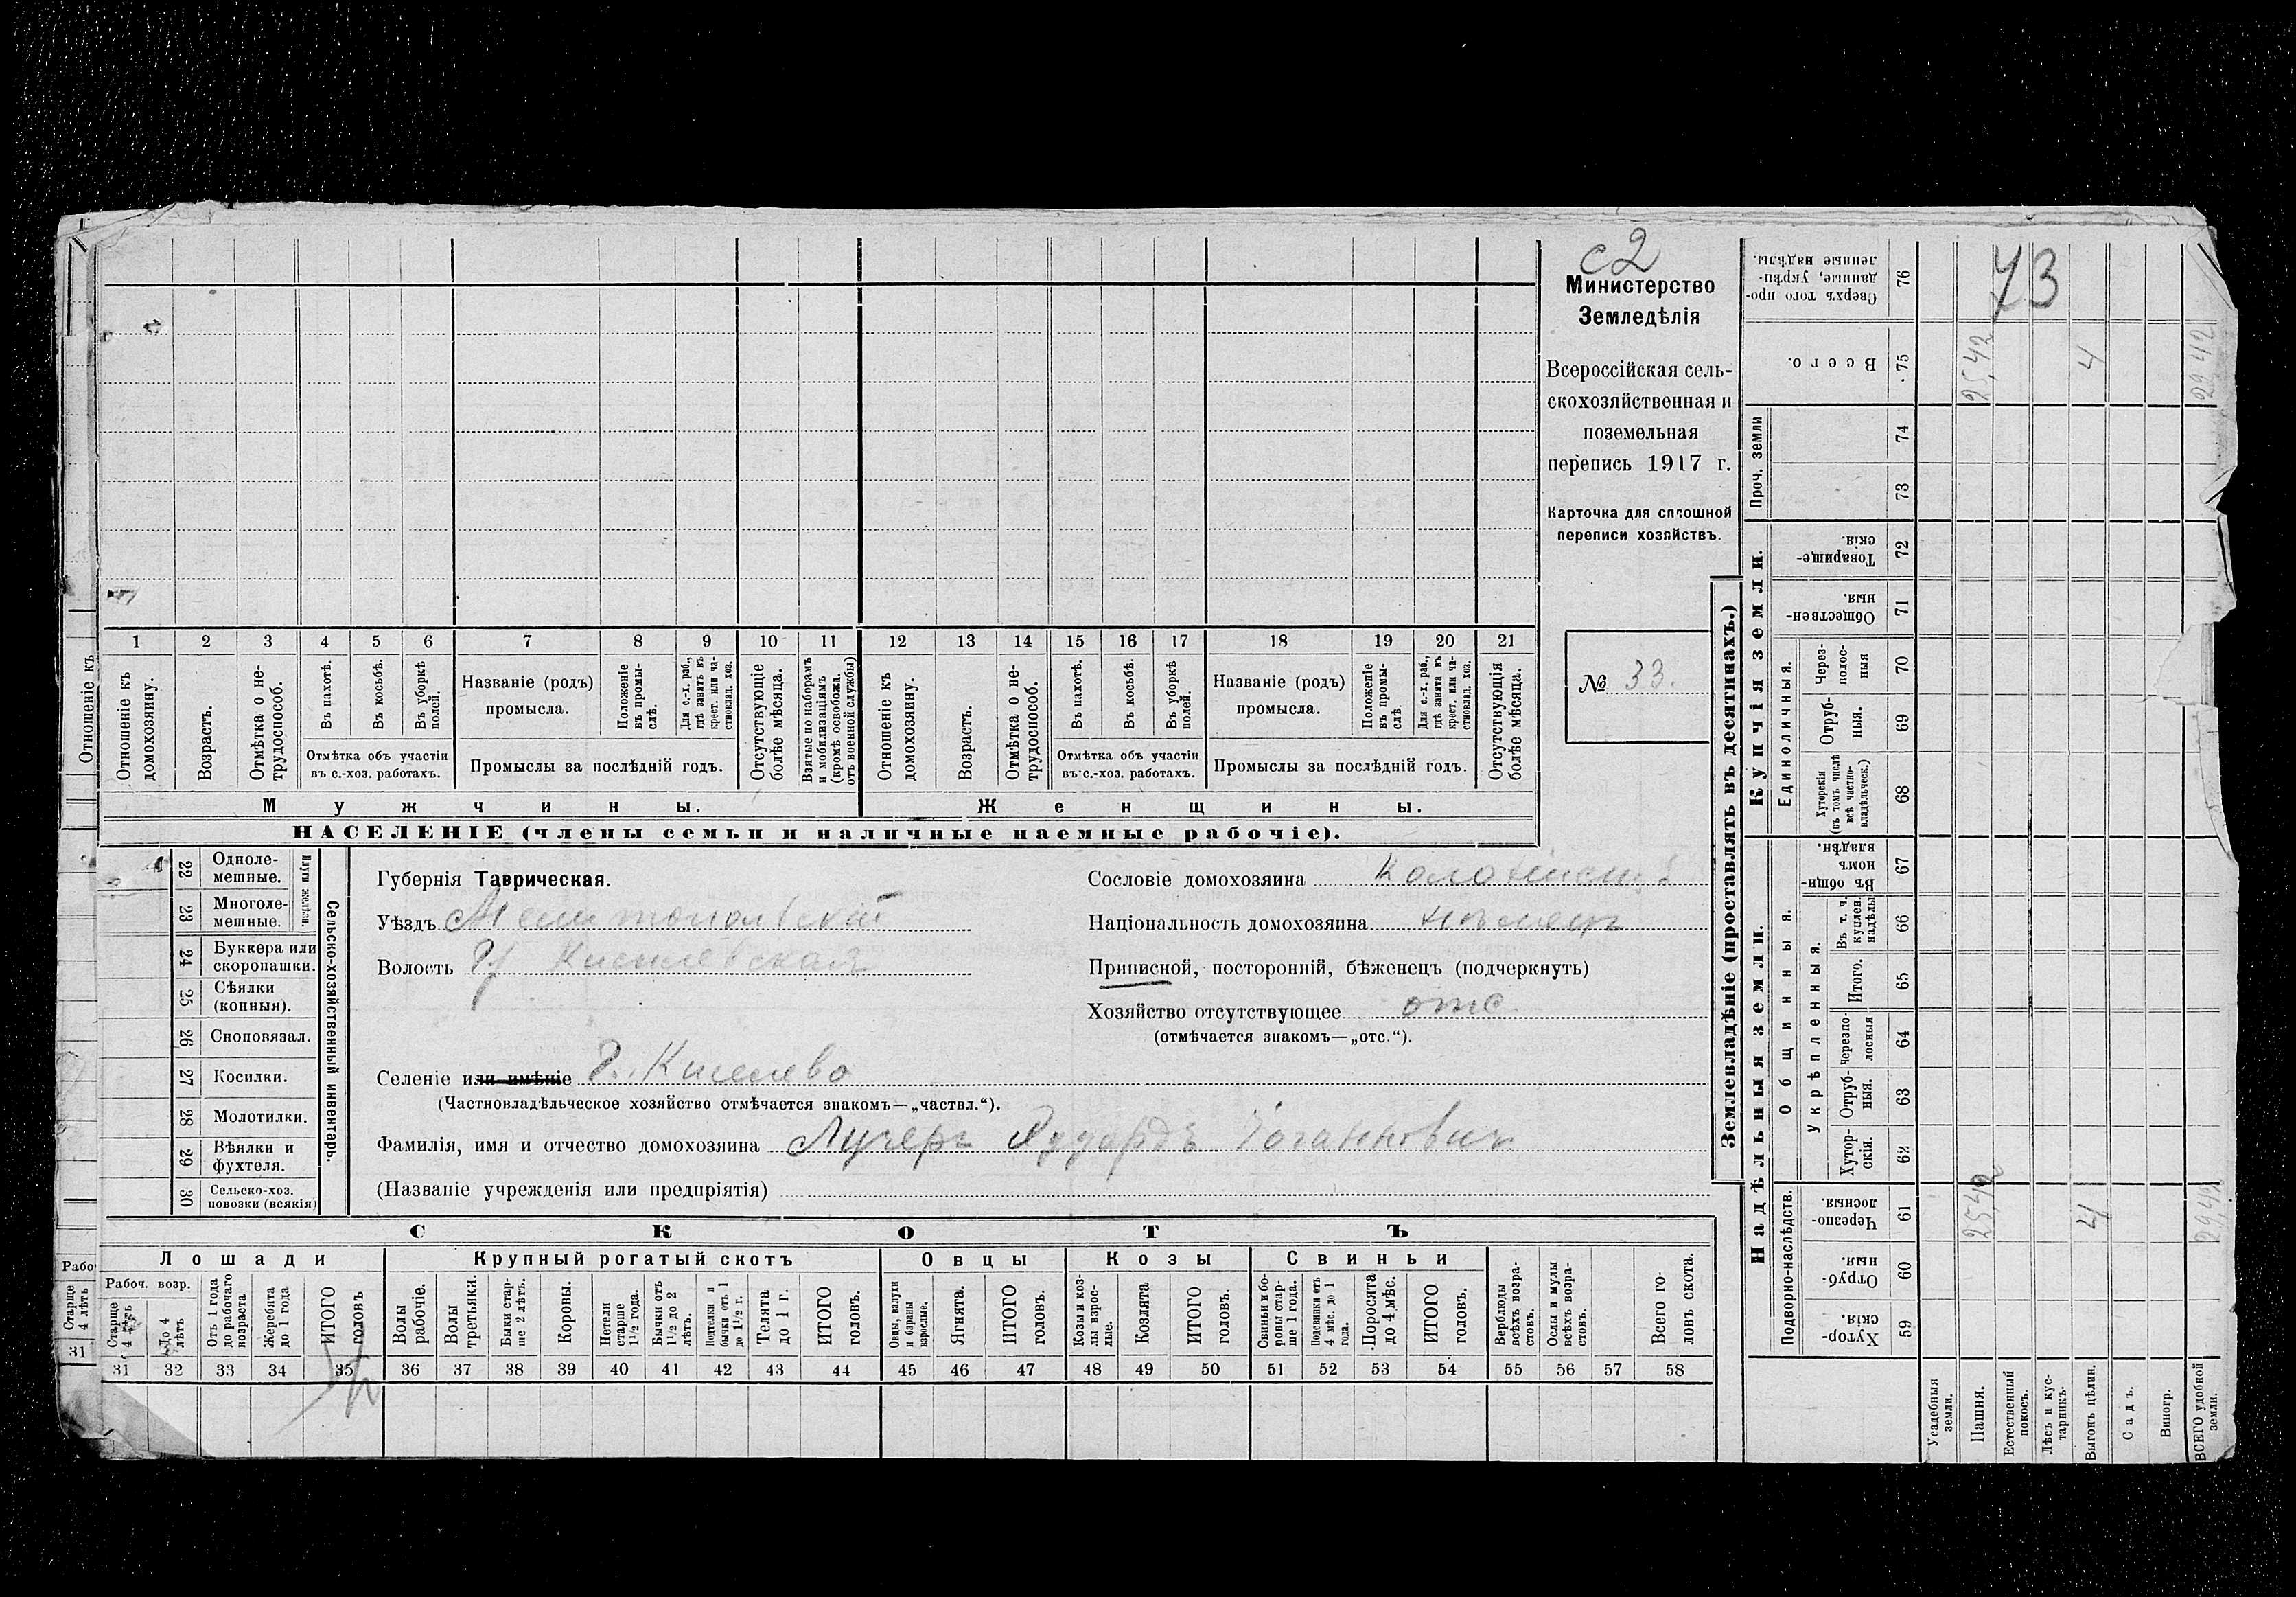 с2
Министерство
Земледѣлія
Всероссійская сель-
скохозяйственная и
поземельная
перепись 1917 г.
Карточка для сплошной
переписи хозяйствъ.
№ 33.
1 2 3 4 5 6 7 8 9 10 11 12 13 14 15 16 17 18 19 20 21
Отношеніе къ домохозяину.
Возрастъ.
Отмѣтка о не-
трудоспособ.
Въ пахотѣ.
Въ косьбѣ.
Въ уборкѣ
полей.
Отмѣтка объ участіи
въ с.-хоз. работахъ.
Названіе (родъ)
промысла.
Положеніе
въ промы-
слѣ.
Для с.-х. раб.,
гдѣ занятъ въ
крест. или ча-
стновлад. хоз.
Промыслы за послѣдній годъ.
Отсутствующіе
болѣе мѣсяца.
Взятые по наборамъ
и мобилизаціямъ
(кромѣ освобожд.
отъ военной службы)
Отношеніе къ
домохозяину.
Возрастъ.
Отмѣтка о не-
трудоспособ.
Въ пахотѣ.
Въ косьбѣ.
Въ уборкѣ
полей.
Отмѣтка объ участіи
въ с.-хоз. работахъ.
Названіе (родъ)
промысла.
Положеніе
въ промы-
слѣ.
Для с.-х. раб.,
гдѣ занята въ
крест. или ча-
стновлад. хоз.
Промыслы за послѣдній годъ.
Отсутствующія
болѣе мѣсяца.
Мужчины.
Женщины.
НАСЕЛЕНІЕ (члены семьи и наличные наемные рабочіе).
22 Одноле-
мешные.
23 Многоле-
мешные.
Плуги желѣзн.
24 Буккера или
скоропашки.
25 Сѣялки
(конныя).
26 Сноповязал.
27 Косилки.
28 Молотилки.
29 Вѣялки и
фухтеля.
30 Сельско-хоз.
повозки (всякія)
Сельско-хозяйственный инвентарь.
Губернія Таврическая.
Уѣздъ Мелитопольскій
Волость Кисилевская
Сословіе домохозяина Колонистъ
Національность домохозяина нѣмецъ
Приписной, посторонній, бѣженецъ (подчеркнуть)
Хозяйство отсутствующее отс.
(отмѣчается знакомъ—„отс.“).
Селеніе или имѣніе Киселево
(Частновладѣльческое хозяйство отмѣчается знакомъ—„частвл.“).
Фамилія, имя и отчество домохозяина Эдуардъ Іоганновичъ
(Названіе учрежденія или предпріятія)
СКОТЪ
Лошади
Крупный рогатый скотъ
Овцы
Козы
Свиньи
Рабоч. возр.
Старше
4 лѣтъ
До 4
лѣтъ
Отъ 1 года
до рабочаго
возраста
Жеребята
до 1 года
ИТОГО
головъ
Волы
рабочіе.
Волы
третьяки.
Быки стар-
ше 2 лѣтъ.
Коровы.
Нетели
старше
1½ года.
Бычки отъ
1½ до 2
лѣтъ.
Подтелки и
бычки отъ 1
до 1½ г.
Телята
до 1 г.
ИТОГО
головъ.
Овцы, валухи
и бараны
взрослые.
Ягнята.
ИТОГО
головъ.
Козы и коз-
лы взрос-
лые.
Козлята
ИТОГО
головъ.
Свиньи и бо-
ровы стар-
ше 1 года.
Подсвинки отъ
4 мѣс. до 1
года.
Поросята
до 4 мѣс.
ИТОГО
головъ.
Верблюды
всѣхъ возра-
стовъ.
Ослы и мулы
всѣхъ возра-
стовъ.
Всего го-
ловъ скота.
31 32 33 34 35 36 37 38 39 40 41 42 43 44 45 46 47 48 49 50 51 52 53 54 55 56 57 58
Отношеніе къ
Старше
4 лѣтъ
31
Землевладѣніе (проставлять въ десятинахъ.)
Купчія земли.
Надѣльныя земли.
Проч. земли
Единоличныя.
Общинныя.
Укрѣпленныя.
Подворно-наслѣдств.
Сверхъ того про-
данные, укрѣп-
ленные надѣлы.
76
73
Всего.
75
25,42
4
29,42
74
73
Товарище-
скія.
72
Обществен-
ныя.
71
Через-
полос-
ныя
70
Отруб-
ныя.
69
Хуторскія
(въ томъ числѣ
всѣ частно-
владѣльческ.)
68
Въ общи-
номъ
владѣн.
67
Въ т. ч.
куплен.
надѣлы
66
Итого.
65
Черезпо-
лосныя
64
Отруб-
ныя.
63
Хутор-
скія.
62
Черезпо-
лосныя
61
25,42
4
29,42
Отруб-
ныя.
60
Хутор-
скія.
59
Усадебныя
земли.
Пашня.
Естественный
покосъ.
Лѣсъ и кус-
тарникъ.
Выгонъ цѣлин.
Садъ.
Виногр.
ВСЕГО удобной
земли.